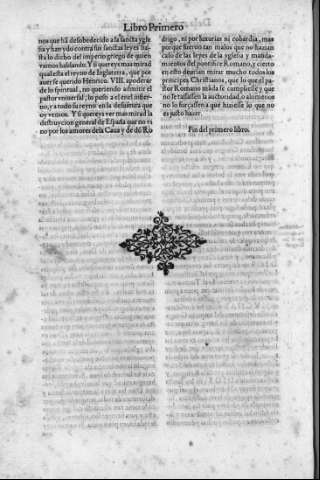 Libro Primero
nos que há desobedecido a la sancta ygle
sia y han ydo contra sus sanctas leyes ba-
sta lo dicho del imperio griego de quien
vemos hablando. Y si quereys mas mirad
qual esta el reyno de Inglaterra, que por
auerse querido Henrico. VIII. apoderar
de lo spiritual, no queriendo admitir el
pastor vniuersal, lo puso a el en el infier-
no, y a todo su reyno en la desuentura que
oy vemos. Y si quereys ver mas mirad la
destruycion general de España que no vi
no por los amores dela Caua y de dó Ro
drigo, ni por luxurias ni cobardia, mas
porque fueron tan malos que no hazian
caso de las leyes de la yglesia y manda-
mientos del pontifice Romano, y cierto
en esto deurian mirar mucho todos los
principes Christianos, que lo que el pa-
stor Romano máda se cumpliesse y que
no le traspassassen la auctoridad, o alomenos
no lo forçassen a que hiziesse lo que no
es justo hazer.
Fin del primero libro.